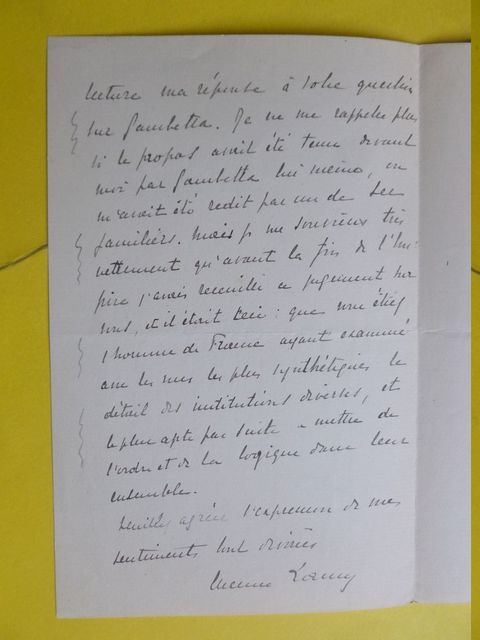 lecture ma réponse à votre question
sur Gambetta. Je ne me rappelle plus
si le propos avait été tenu devant
moi par Gambetta lui même, ou
m'avait été redit par un de ses
familiers. Mais je me souviens très
nettement qu'avant la fin de l'Em-
pire j'avais recueilli ce jugement sur
vous, et il était ceci : que vous étiez
l'homme de France ayant examiné
avec les vues les plus synthétiques le
détail des institutions diverses, et
le plus apte par suite à mettre de
l'ordre et de la logique dans leur
ensemble.
Veuillez agréer l'expression de mes
sentiments tout